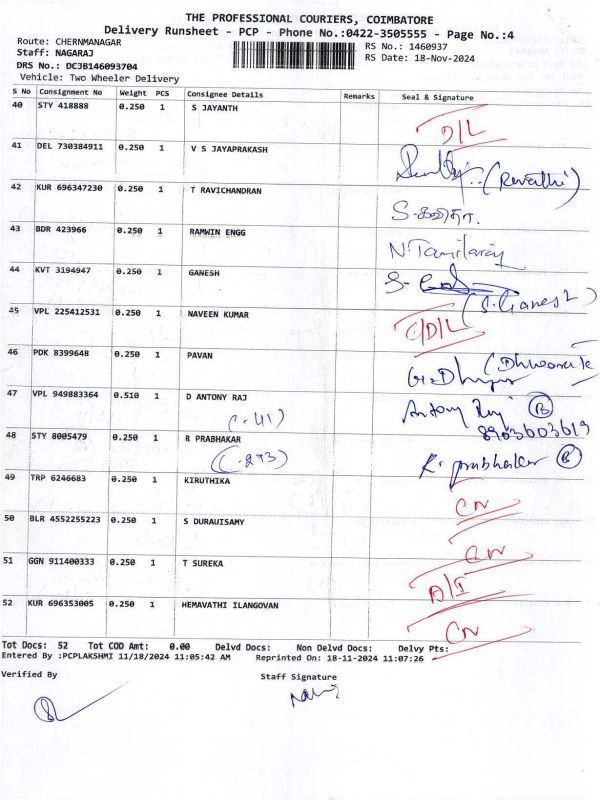 THE PROFESSIONAL COURIERS, COIMBATORE
Delivery Runsheet - PCP - Phone No.:0422-3505555 - Page No.:4
Route: CHERNMANAGAR RS No.: 1460937
Staff: NAGARAJ RS Date: 18-Nov-2024
DRS No.: DCJB146093704
Vehicle: Two Wheeler Delivery
S No Consignment No Weight PCS Consignee Details Remarks Seal & Signature
40 STY 418888 0.250 1 S JAYANTH D/L
41 DEL 730384911 0.250 1 V S JAYAPRAKASH (Revathi)
42 KUR 696347230 0.250 1 T RAVICHANDRAN S. கவிதா.
43 BDR 423966 0.250 1 RAMWIN ENGG N. Tamilaraj
44 KVT 3194947 0.250 1 GANESH (S. Ganesh)
45 VPL 225412531 0.250 1 NAVEEN KUMAR C/D/L
46 PDK 8399648 0.250 1 PAVAN
47 VPL 949883364 0.510 1 D ANTONY RAJ Antony Raj B
(-41) 8903603619
48 STY 8005479 0.250 1 R PRABHAKAR R. prabhakar B
(-293)
49 TRP 6246683 0.250 1 KIRUTHIKA CN
50 BLR 4552255223 0.250 1 S DURAUISAMY CN
51 GGN 911400333 0.250 1 T SUREKA A/I
52 KUR 696353005 0.250 1 HEMAVATHI ILANGOVAN CN
Tot Docs: 52 Tot COD Amt: 0.00 Delvd Docs: Non Delvd Docs: Delvy Pts:
Entered By :PCPLAKSHMI 11/18/2024 11:05:42 AM Reprinted On: 18-11-2024 11:07:26
Verified By Staff Signature